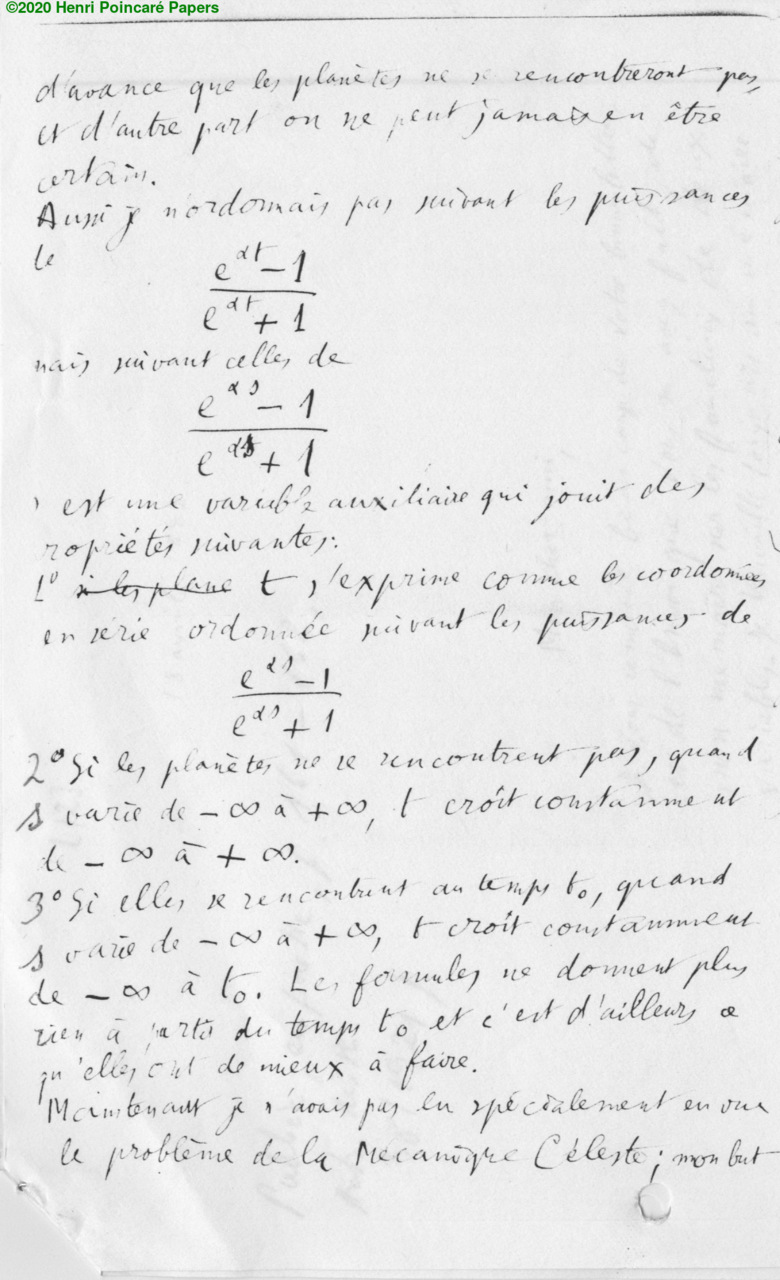 ©2020 Henri Poincaré Papers
d'avance que les planètes ne se rencontreront pas,
et d'autre part on ne peut jamais en être
certain.
Aussi je n'ordonnais pas suivant les puissances
de
e^{αt} − 1
e^{αt} + 1
mais suivant celles de
e^{αs} − 1
e^{αs} + 1
s est une variable auxiliaire qui jouit des
ropriétés suivantes:
1° si les plane t s'exprime comme les coordonnées
en série ordonnée suivant les puissances de
e^{αs} − 1
e^{αs} + 1
2° Si les planètes ne se rencontrent pas, quand
s varie de − ∞ à + ∞, t croît constamment
de − ∞ à + ∞.
3° Si elles se rencontrent au temps t₀, quand
s varie de − ∞ à + ∞, t croît constamment
de − ∞ à t₀. Les formules ne donnent plus
rien à partir du temps t₀ et c'est d'ailleurs ce
qu'elles ont de mieux à faire.
Maintenant je n'avais pas eu spécialement en vue
le problème de la Mécanique Céleste; mon but